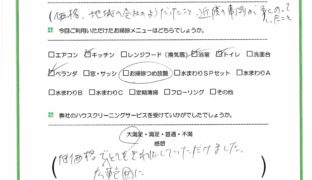 価格、地域の会社のようだったこと、近隣の事例が
今回ご利用いただけたお掃除メニューはどちらでしょうか。
□エアコン ☑キッチン □レンジフード(換気扇) ☑浴室 ☑トイレ □洗面台
☑ベランダ □窓・サッシ □お掃除つめ放題 □水まわりSPセット □水まわりA
□水まわりB □水まわりC □定期清掃 □フローリング □その他
弊社のハウスクリーニングサービスを受けていかがでしたでしょうか。
大満足・満足・普通・不満
感想
低価格で とてもきれいにしていただけました。
広範囲に